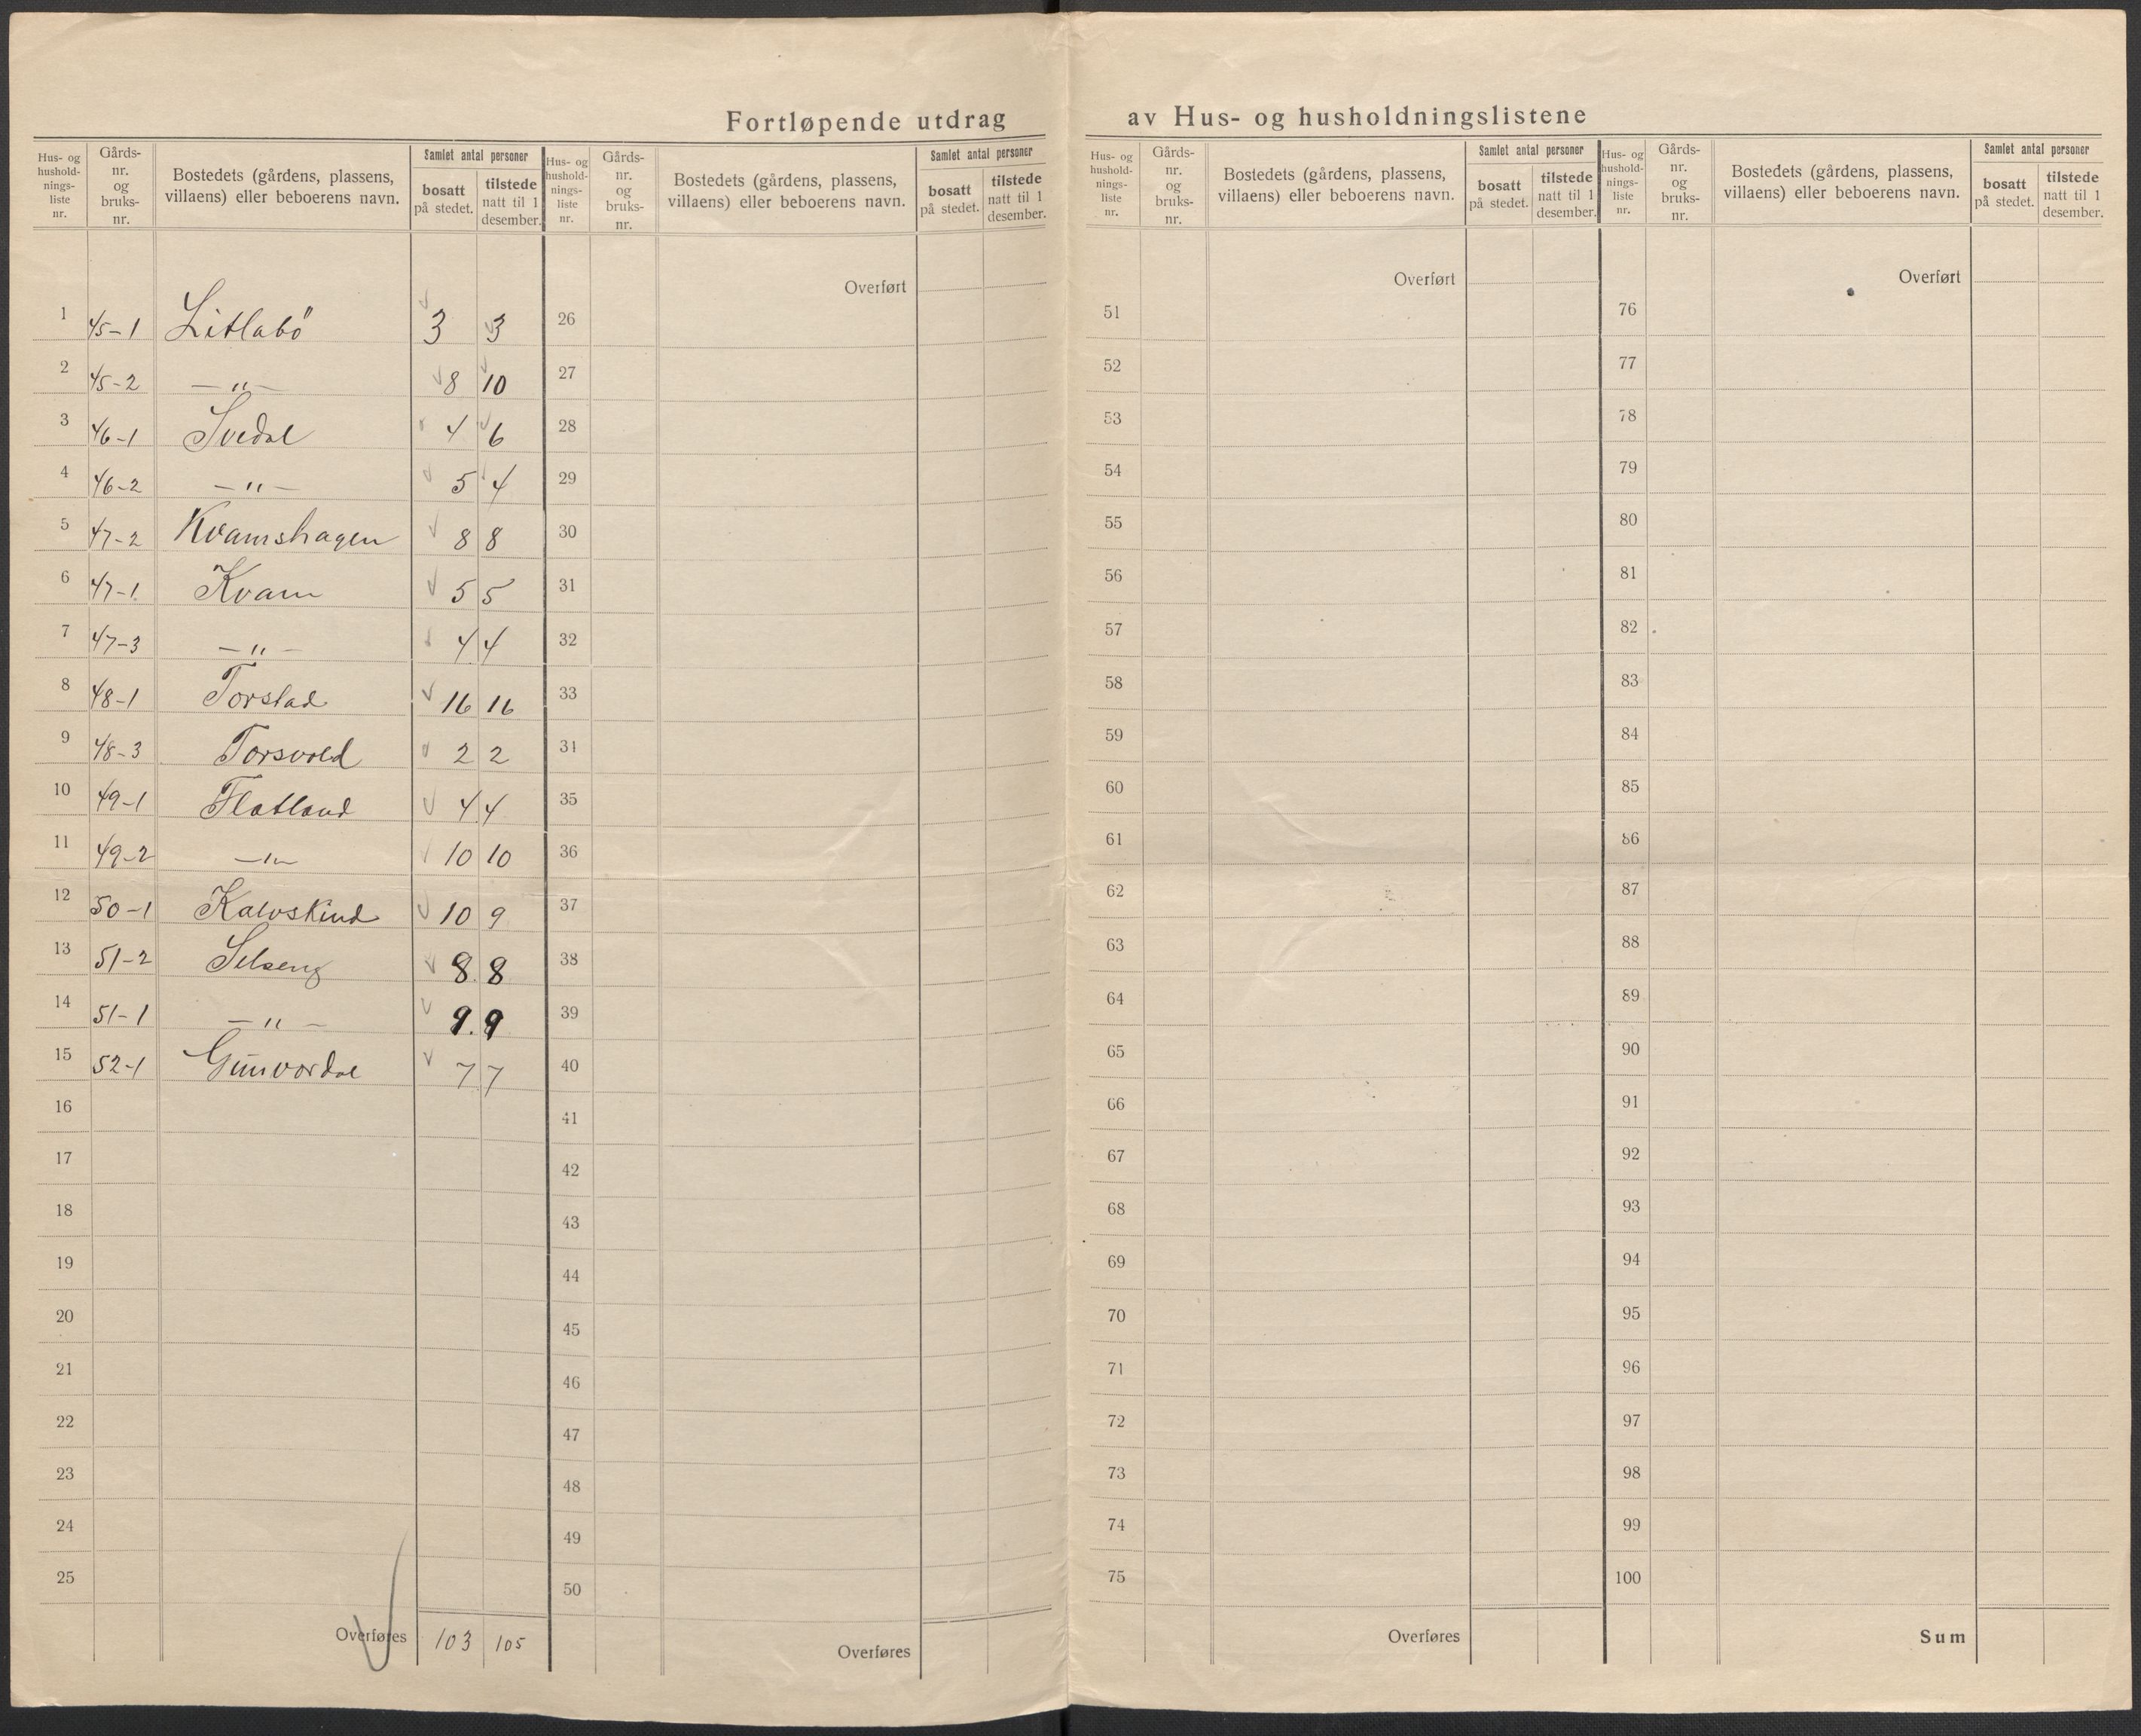 Fortløpende utdrag av Hus- og husholdningslistene
Hus- og hushold-nings-liste nr. Gårds-nr. og bruks-nr. Bostedets (gårdens, plassens, villaens) eller beboerens navn. Samlet antal personer bosatt på stedet. tilstede natt til 1 desember.
1 45-1 Litlabö 3 3
2 45-2 — " — 8 10
3 46-1 Svedal 4 6
4 46-2 — " — 5 4
5 47-2 Kvamshagen 8 8
6 47-1 Kvam 5 5
7 47-3 — " — 4 4
8 48-1 Torstad 16 16
9 48-3 Torsvold 2 2
10 49-1 Flatland 4 4
11 49-2 — " — 10 10
12 50-1 Kalvskind 10 9
13 51-2 Selseng 8 8
14 51-1 — " — 9. 9
15 52-1 Gunvordal 7 7
16
17
18
19
20
21
22
23
24
25
Overføres 103 105
Hus- og hushold-nings-liste nr. Gårds-nr. og bruks-nr. Bostedets (gårdens, plassens, villaens) eller beboerens navn. Samlet antal personer bosatt på stedet. tilstede natt til 1 desember.
Overført
26
27
28
29
30
31
32
33
31
35
36
37
38
39
40
41
42
43
44
45
46
47
48
49
50
Overføres
Hus- og hushold-nings-liste nr. Gårds-nr. og bruks-nr. Bostedets (gårdens, plassens, villaens) eller beboerens navn. Samlet antal personer bosatt på stedet. tilstede natt til 1 desember.
Overført
51
52
53
54
55
56
57
58
59
60
61
62
63
64
65
66
67
68
69
70
71
72
73
74
75
Overføres
Hus- og hushold-nings-liste nr. Gårds-nr. og bruks-nr. Bostedets (gårdens, plassens, villaens) eller beboerens navn. Samlet antal personer bosatt på stedet. tilstede natt til 1 desember.
Overført
76
77
78
79
80
81
82
83
84
85
86
87
88
89
90
91
92
93
94
95
96
97
98
99
100
Sum